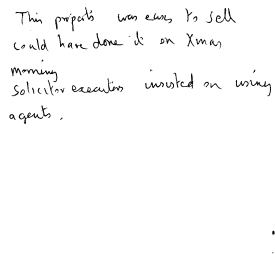 This property was easy to sell
could have done it on Xmas
morning
Solicitor executors insisted on using
agents.